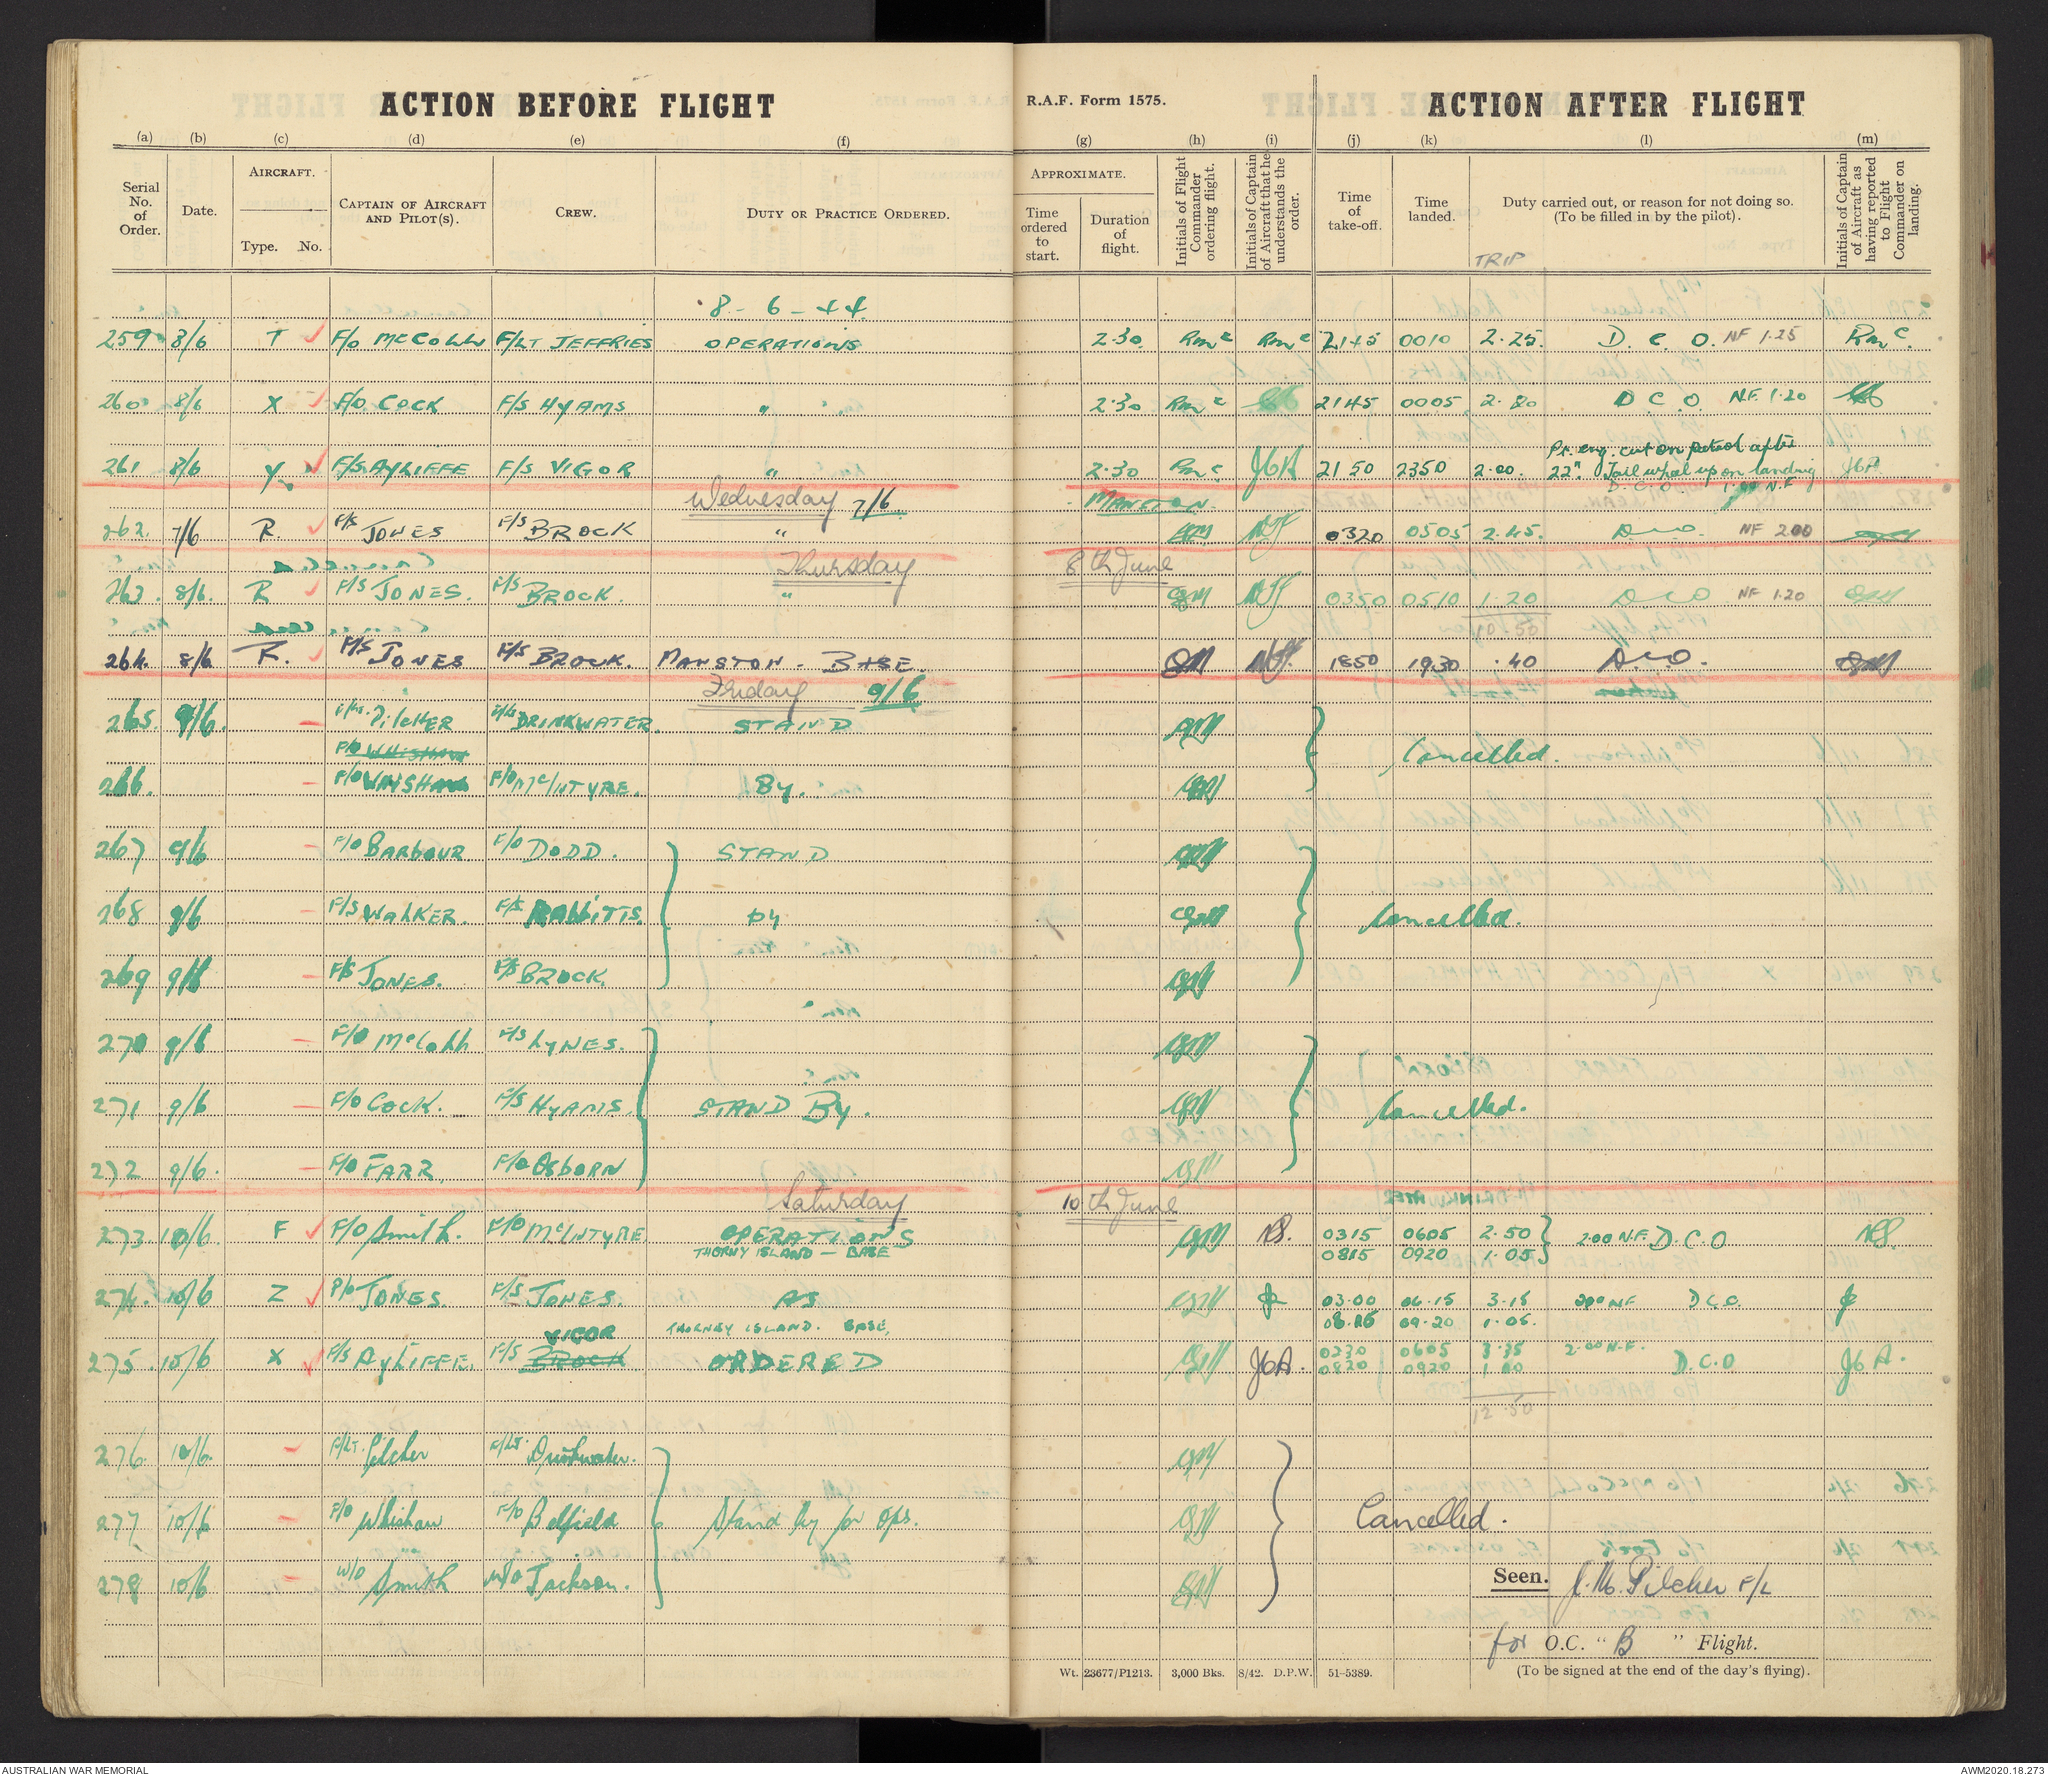 ACTION BEFORE FLIGHT
R.A.F. Form 1575.
ACTION AFTER FLIGHT
(a) (b) (c) (d) (e) (f) (g) (h) (i) (j) (k) (l) (m)
Serial No. of Order.
Date.
AIRCRAFT.
Type. No.
CAPTAIN OF AIRCRAFT AND PILOT(S).
CREW.
DUTY OR PRACTICE ORDERED.
APPROXIMATE.
Time ordered to start.
Duration of flight.
Initials of Flight Commander ordering flight.
Initials of Captain of Aircraft that he understands the order.
Time of take-off.
Time landed.
Duty carried out, or reason for not doing so. (To be filled in by the pilot).
Initials of Captain of Aircraft as having reported to Flight Commander on landing.
TRIP
8 - 6 - 44
259 8/6 T F/O McCOLL F/LT JEFFRIES OPERATIONS 2.30 RMc RMc 2145 0010 2.25. D. C. O. NF 1.25 RMc.
260 8/6 X F/O COCK F/S HYAMS " 2.30 RMc 2145 0005 2.20 D C O. N.F. 1.20
Pt. eng. cut on petrol after
261 8/6 Y F/S AYLIFFE F/S VIGOR " 2.30 RMc JGA 2150 2350 2.00. 22". Tail wheel up on landing JGA
D.C.O. 1.00 N.F
Wednesday 7/6 MANSTON.
262. 7/6 R. F/S JONES F/S BROCK " 0320 0505 2.45. DCO NF 2.00
Thursday 8th June
263. 8/6. R F/S JONES. F/S BROCK. " 0350 0510 1.20 DCO NF 1.20
10.50
264. 8/6 F. F/S JONES F/S BROCK. MANSTON - BASE. 1850 1930 .40 DCO.
Friday 9/6
265. 9/6. F/Lt. PILCHER F/Lt DRINKWATER. STAND
F/O WHISHAW
Cancelled.
266. F/O WHISHAW F/O McINTYRE. By.
267 9/6 F/O BARBOUR F/O DODD. STAND
268 9/6 F/S WALKER. F/S RABBITTS by Cancelled.
269 9/6 F/S JONES. F/S BROCK.
270 9/6 F/O McColl F/S LYNES.
271 9/6 F/O COCK. F/S HYAMS STAND By. Cancelled.
272 9/6. F/O FARR. F/O OSBORN
Saturday 10th June
273 10/6. F F/O Smith. F/O McINTYRE OPERATIONS 0315 0605 2.50 2.00 N.F. D.C.O
THORNY ISLAND - BASE 0815 0920 1.05
274. 10/6 Z P/O JONES. F/S JONES. AS 03.00 06.15 3.15 N.F. D.C.O.
VIGOR THORNEY ISLAND. BASE. 08.15 09.20 1.05.
275. 10/6 X F/S AYLIFFE. F/S BROCK ORDERED JGA. 0230 0605 3.35 2.00 N.F. D.C.O JGA.
0820 0920 1.00
12.50
276. 10/6. F/LT. Pilcher F/LT. Drinkwater.
277 10/6 F/O Whishaw F/O Belfield Stand by for Ops. Cancelled.
278 10/6 W/O Smith W/O Jackson.
Seen. J.M. Pilcher F/L
for O.C. " B " Flight.
Wt. 23677/P1213. 3,000 Bks. 8/42. D.P.W. 51-5389. (To be signed at the end of the day's flying).
AUSTRALIAN WAR MEMORIAL
AWM2020.18.273